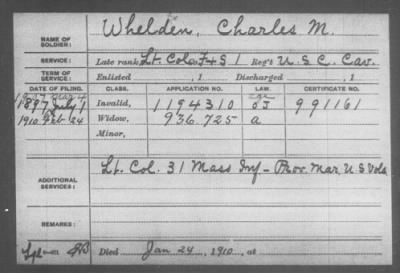 NAME OF SOLDIER: Whelden, Charles M.
SERVICE: Late rank, Lt. Col. F+S 1 Reg't U.S.C. Cav.
TERM OF SERVICE: Enlisted , 1 Discharged , 1
DATE OF FILING. CLASS. APPLICATION NO. LAW. CERTIFICATE NO.
1897 July 1 Invalid, 1194310 OJ 991161
1910 Feb 24 Widow, 936.725 a
Minor,
ADDITIONAL SERVICES: Lt. Col. 31 Mass Inf - Prov. Mar. U S Vols
REMARKS:
Died Jan 24, 1910, at